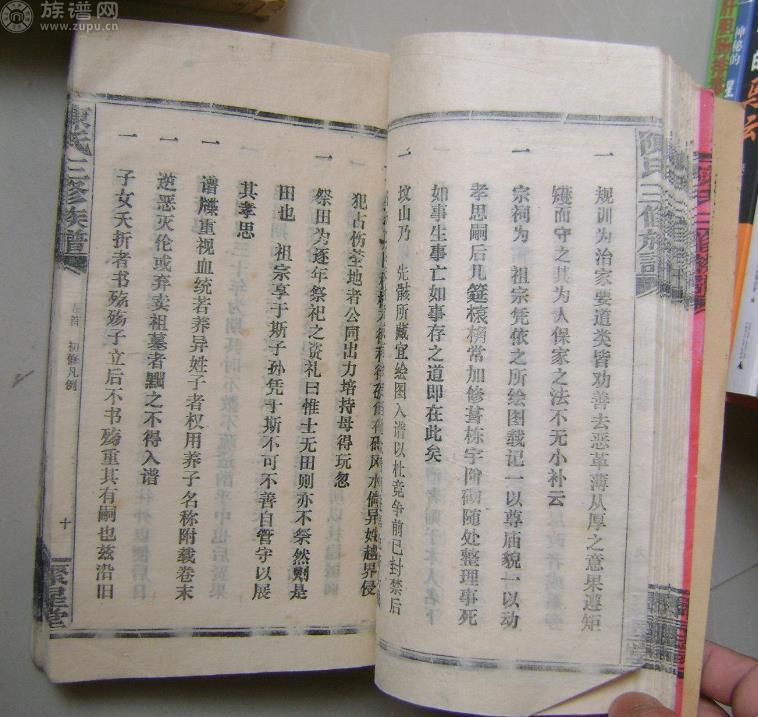 一 规训为治家要道类皆劝善去恶革薄从厚之意果遵矩
矱而守之其为人保家之法不无小补云
一 宗祠为 祖宗凭依之所绘图载记一以尊庙貌一以动
孝思嗣后凡筵榱桷常加修葺栋宇阶砌随处整理事死
如事生事亡如事存之道即在此矣
一 坟山乃 先骸所藏宜绘图入谱以杜竞争前已封禁后
风水倘异姓越界侵
犯古伤茔地者公同出力培持毋得玩忽
一 祭田为逐年祭祀之资礼曰惟士无田则亦不祭然则是
田也 祖宗享于斯子孙凭于斯不可不善自管守以展
其孝思
一 谱牒重视血统若养异姓子者权用养子名称附载卷末
一 逆恶灭伦或弃卖祖墓者黜之不得入谱
一 子女夭折者书殇殇子立后不书殇重其有嗣也兹沿旧
陳氏三修族谱
卷首 初修凡例
十
聚星堂
陳氏三修族譜
族谱网
www.zupu.cn
神秘的